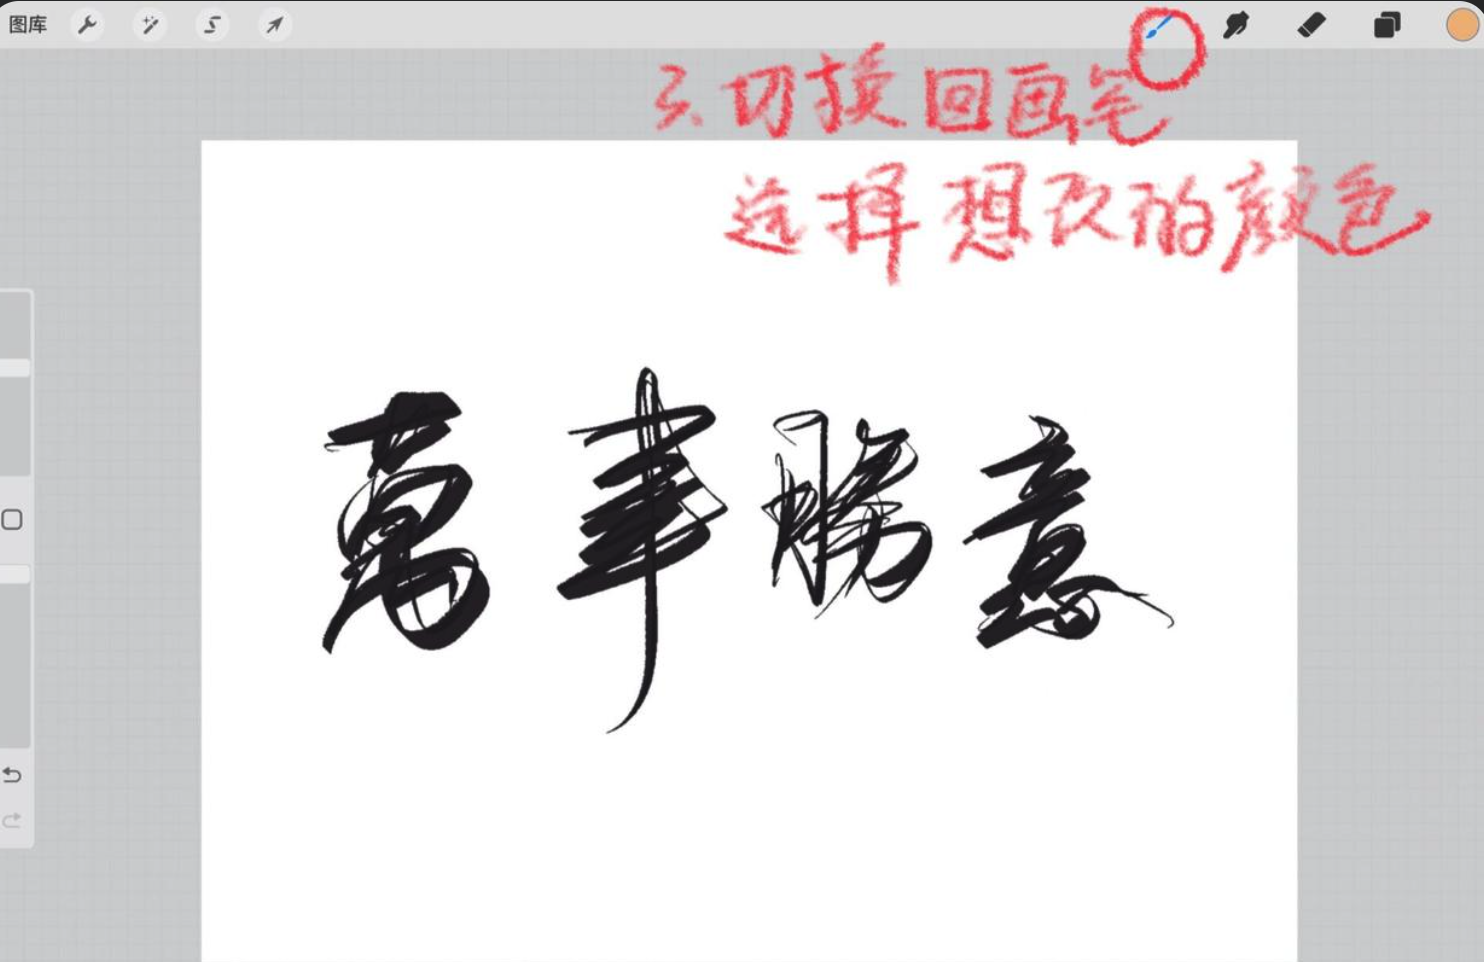 图库
3.切换回画笔
选择想改的颜色
萬事勝意